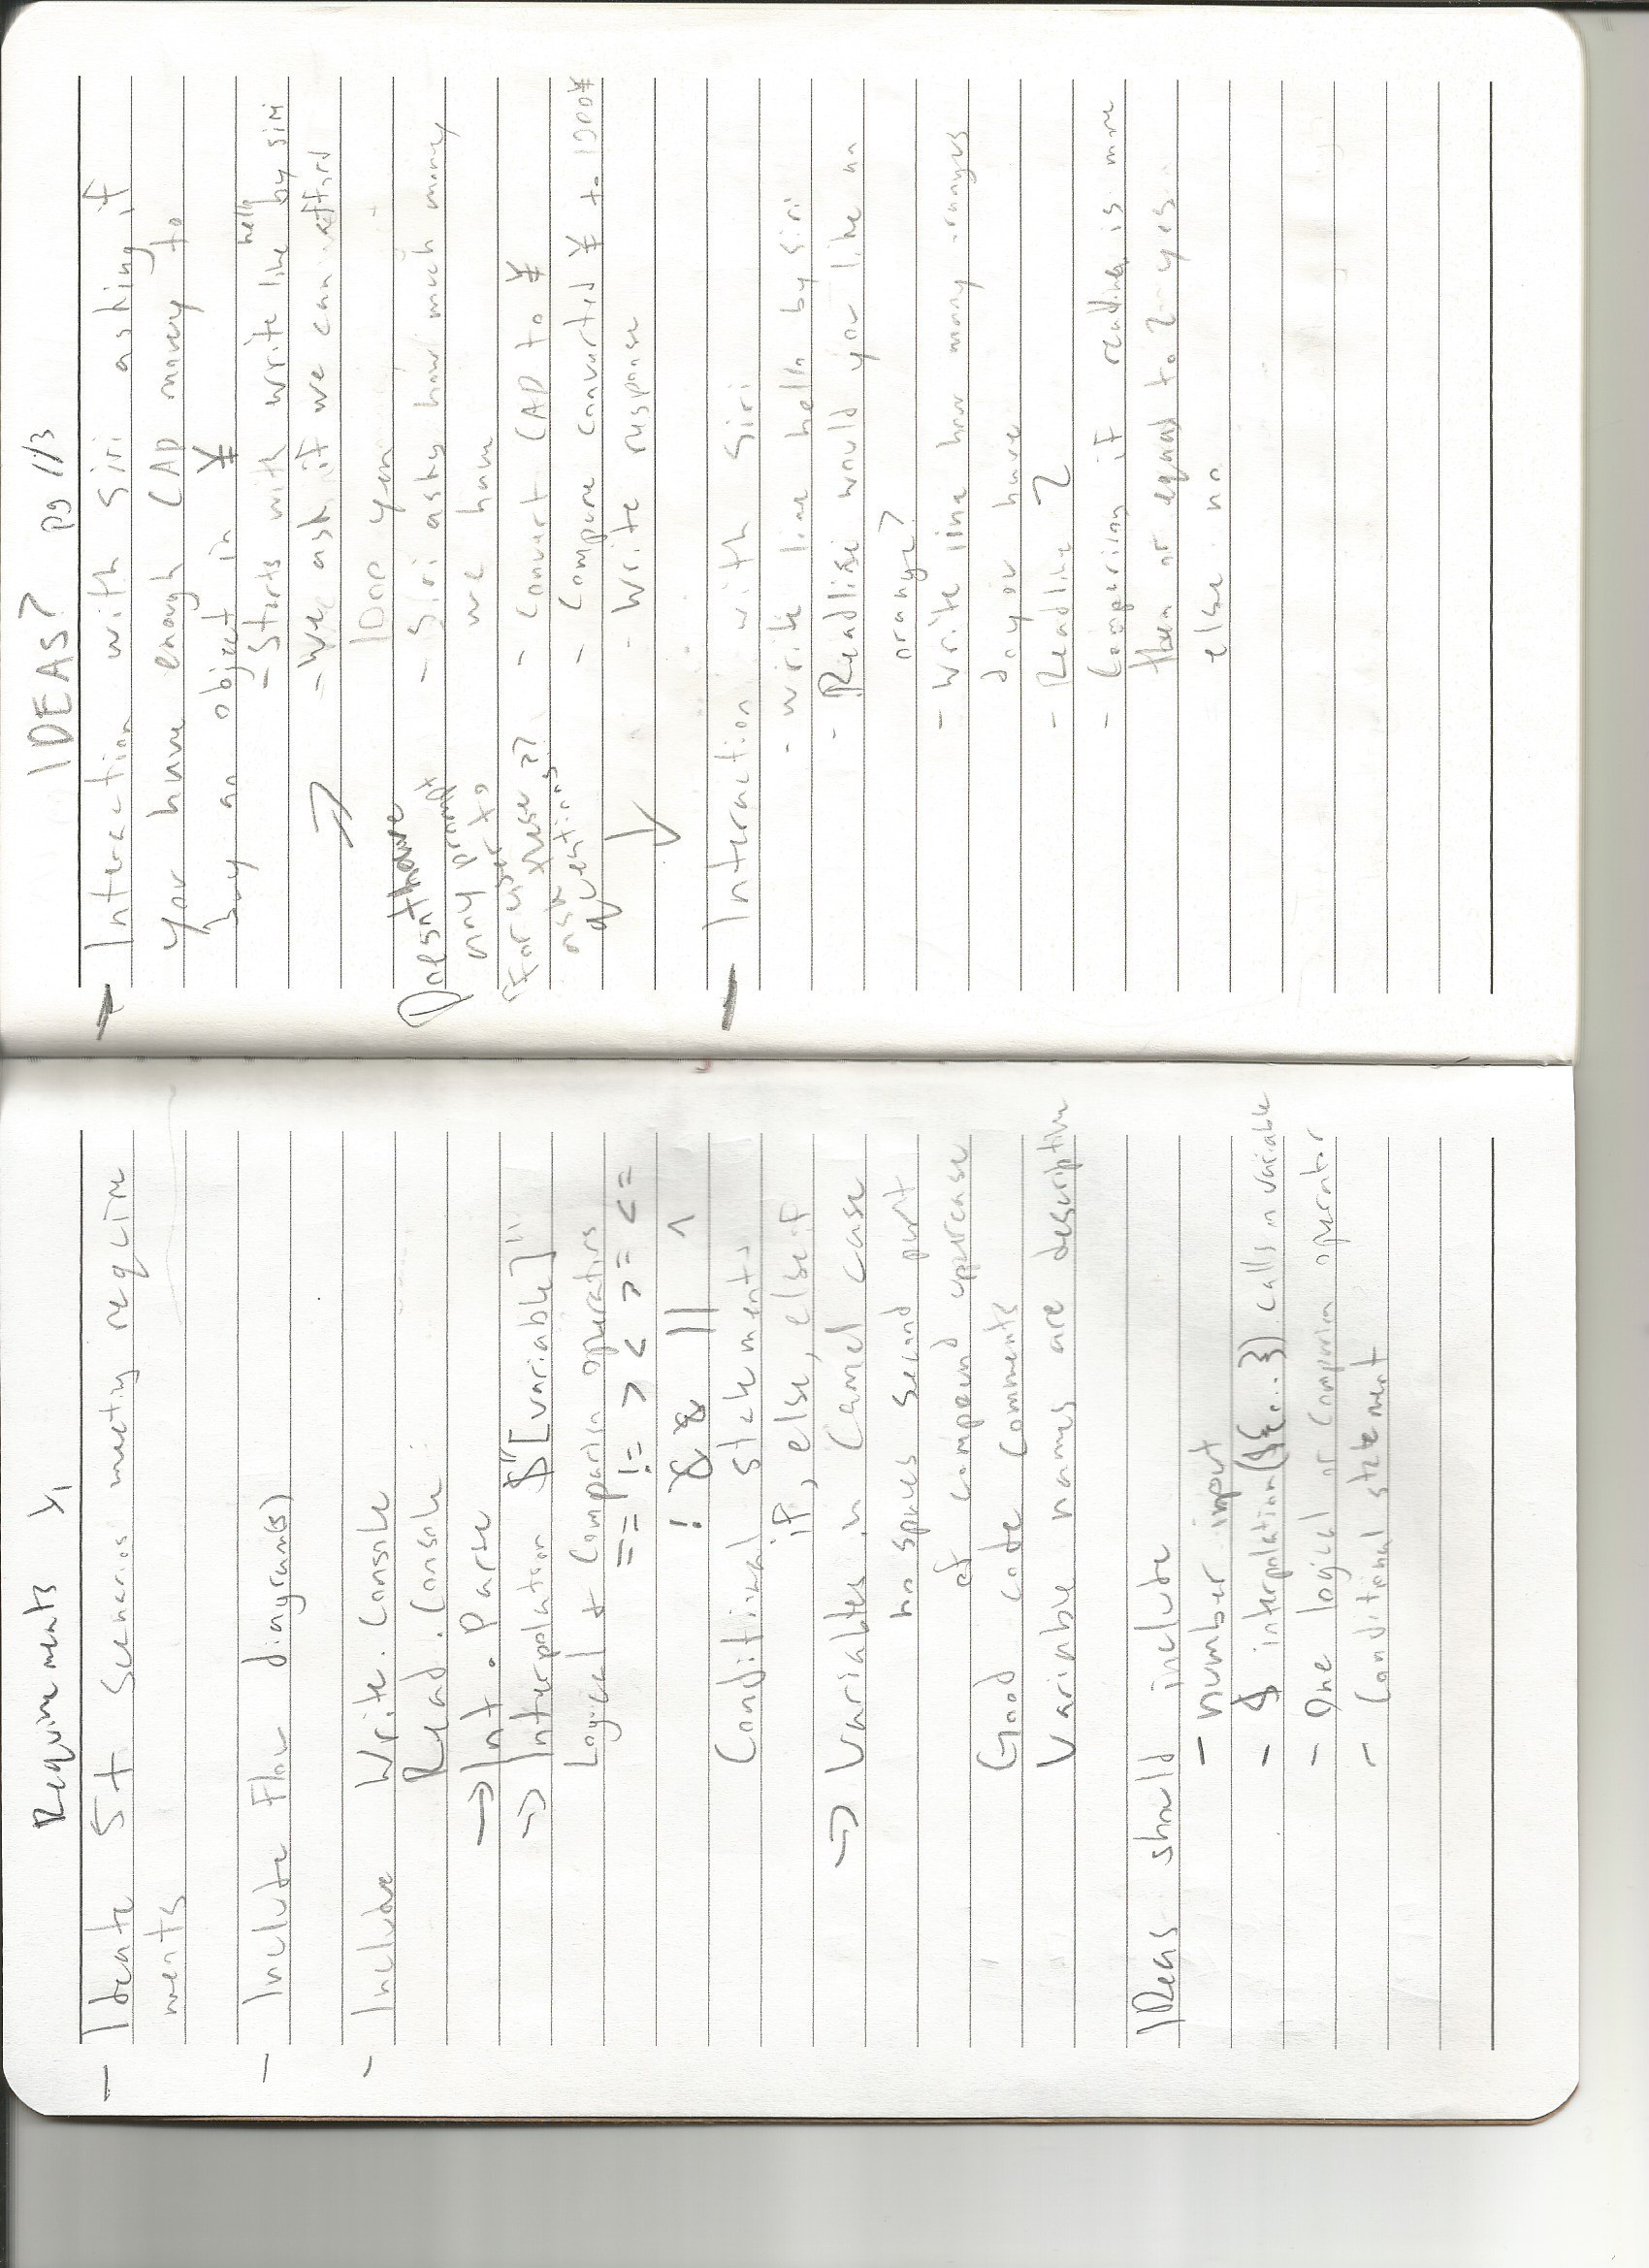 Requirements 1/1
- Ideate 5+ Scenarios meeting require
ments
- Include Flow diagram(s)
- Include Write.Console
Read.Console
→ Int.Parse
→ Interpolation $"[variable]"
Logical + Comparison operators
== != > < >= <=
! && || ^
Conditional statements
if, else, else if
→ Variables in Camel case
no spaces second part
of compound uppercase
Good code comments
Variable names are descriptive
IDeas should include
- number input
- $ interpolation (${...}) calls a variable
- One logical or comparison operator
- Conditional statement
IDEAS? pg 1/3
- Interaction with Siri asking if
you have enough CAD money to
buy an object in ¥
- Starts with write line hello by siri
- We ask if we can afford
100 yen
- Siri asks how much money
we have
- Convert CAD to ¥
- Compare converted ¥ to 1000¥
- Write response
Doesn't have
any prompt
for user to
ask user??
questions
- Interaction with Siri
- write line hello by siri
- Readline would you like an
orange?
- Write line how many oranges
do you have
- Readline 2
- Comparison if readline is more
than or equal to 2 yes..
else no